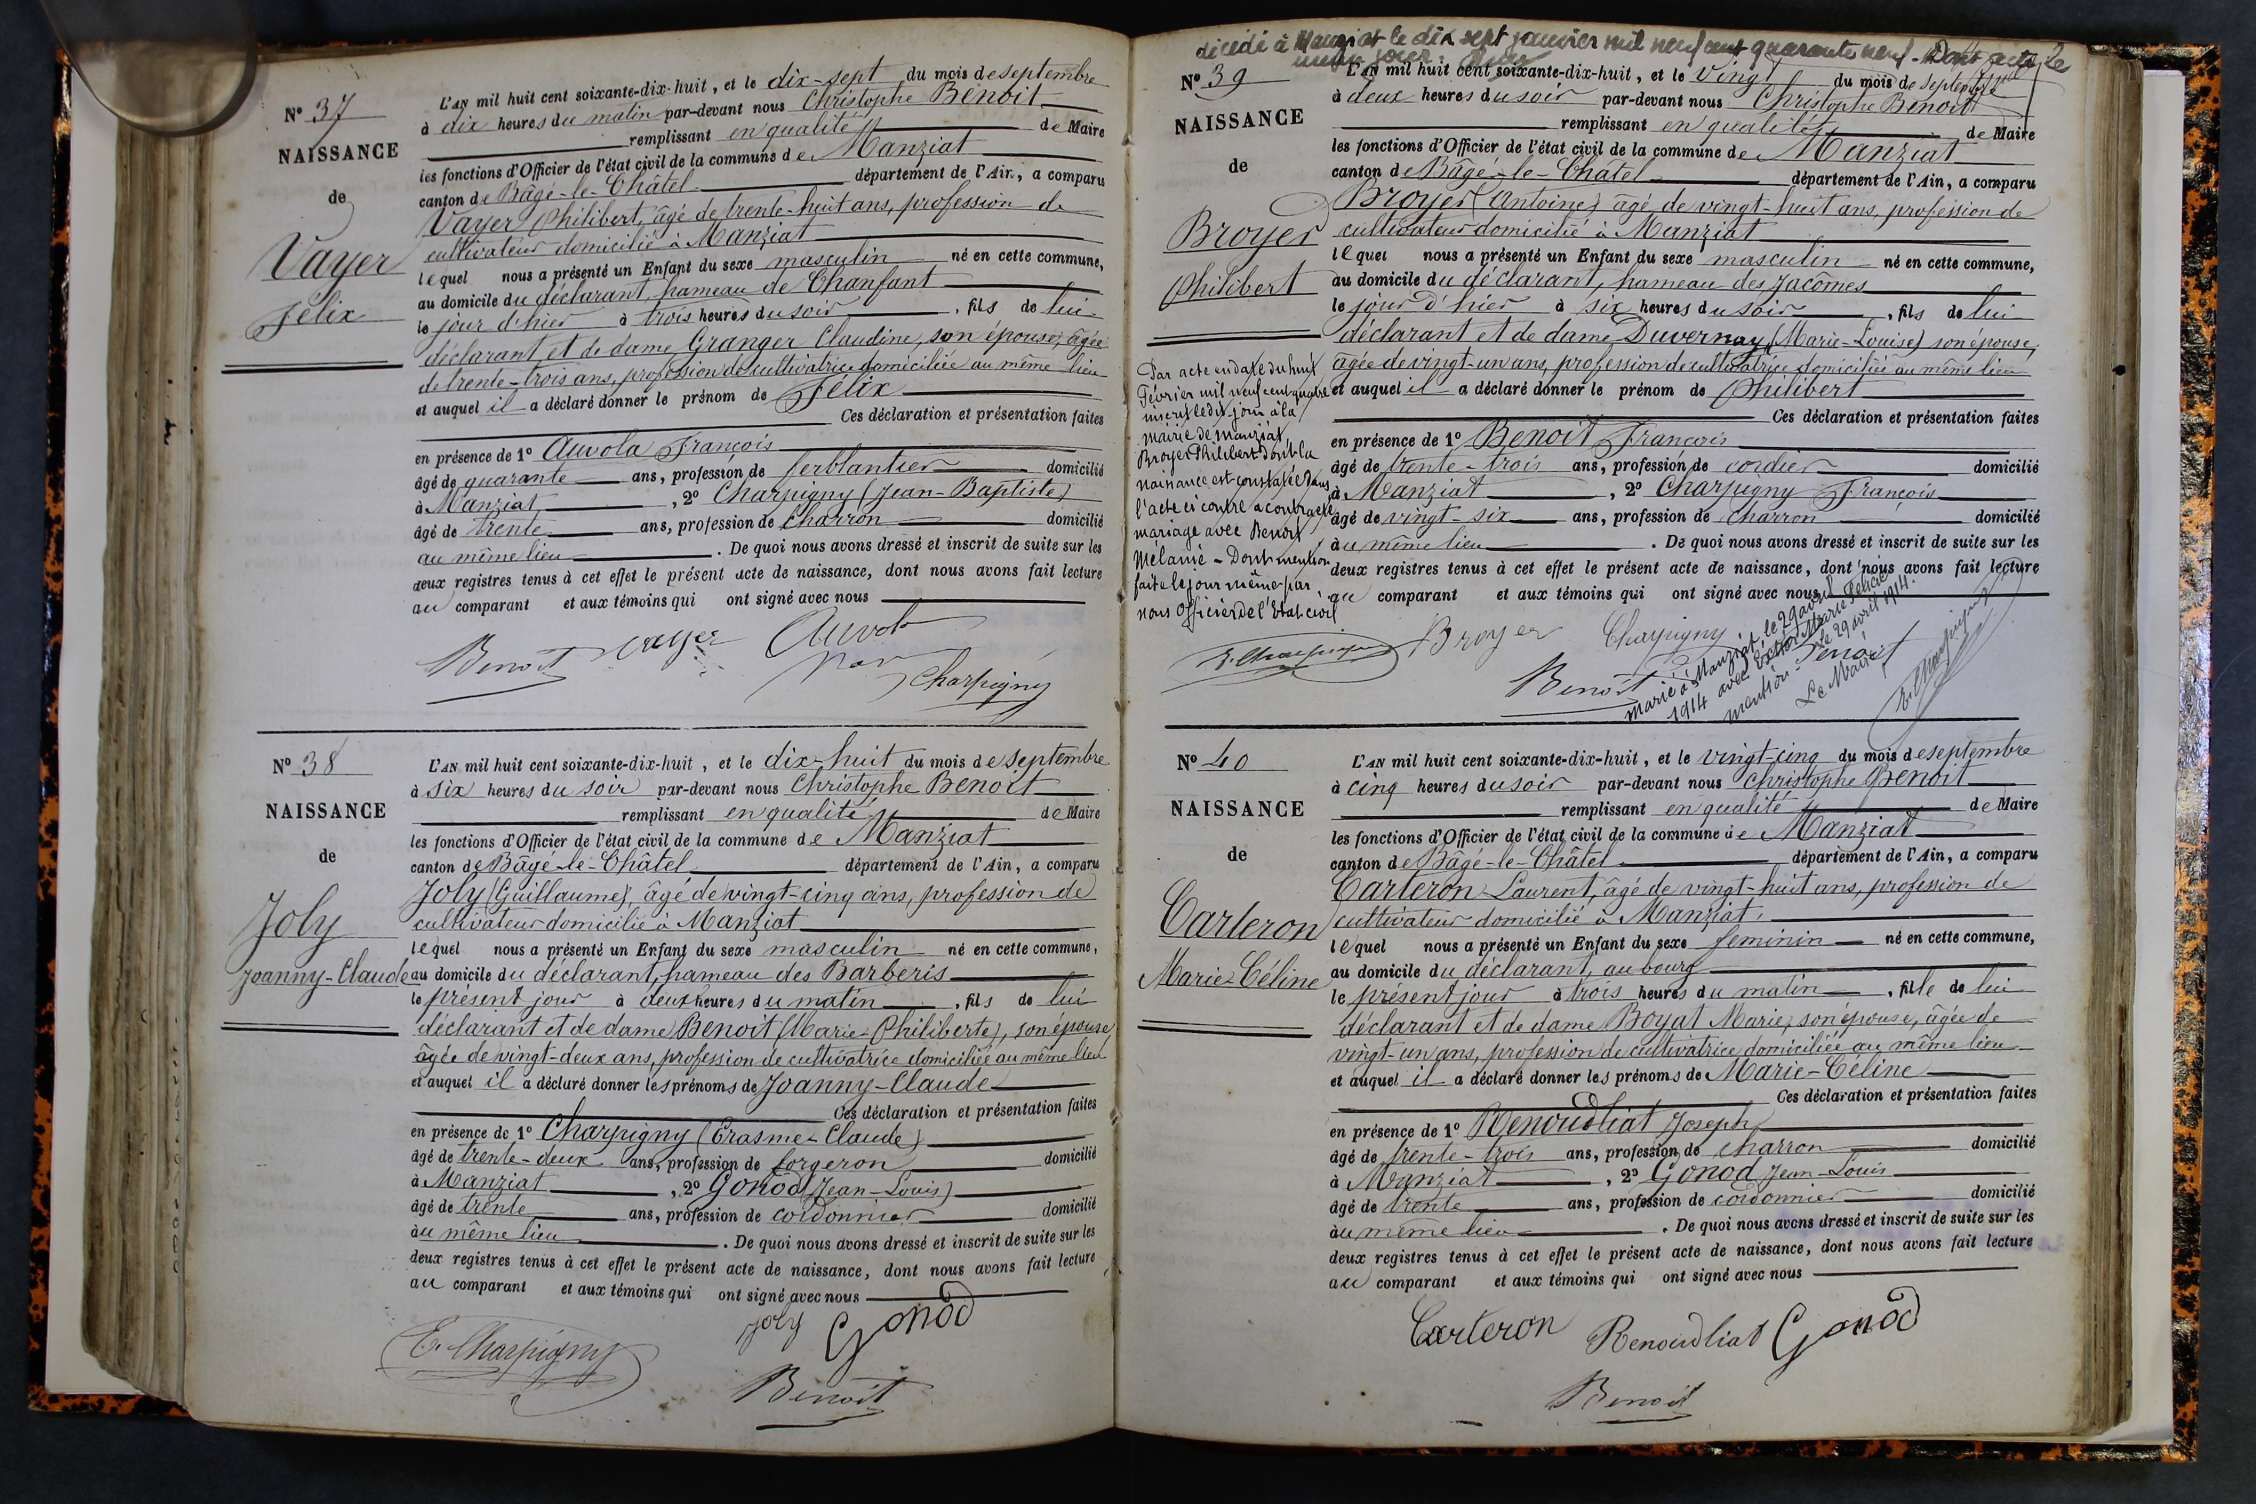 Nº 37
NAISSANCE
de
Vayer
Félix
L'AN mil huit cent soixante-dix-huit, et le dix-sept du mois de septembre
à dix heures du matin par-devant nous Christophe Benoit
remplissant en qualité de Maire
les fonctions d'Officier de l'état civil de la commune de Manziat
canton de Bâgé-le-Châtel département de l'Ain, a comparu
Vayer Philibert, âgé de trente-huit ans, profession de
cultivateur domicilié à Manziat
lequel nous a présenté un Enfant du sexe masculin né en cette commune,
au domicile du déclarant, hameau de Chanfant
le jour d'hier à trois heures du soir, fils de lui
déclarant et de dame Granger Claudine, son épouse, âgée
de trente-trois ans, profession de cultivatrice domiciliée au même lieu
et auquel il a déclaré donner le prénom de Félix
Ces déclaration et présentation faites
en présence de 1º Auvola François
âgé de quarante ans, profession de ferblantier domicilié
à Manziat, 2º Charpigny (Jean-Baptiste)
âgé de trente ans, profession de charron domicilié
au même lieu. De quoi nous avons dressé et inscrit de suite sur les
deux registres tenus à cet effet le présent acte de naissance, dont nous avons fait lecture
au comparant et aux témoins qui ont signé avec nous
Benoit vayer Auvola
Charpigny
Nº 38
NAISSANCE
de
Joly
Joanny-Claude
L'AN mil huit cent soixante-dix-huit, et le dix-huit du mois de septembre
à six heures du soir par-devant nous Christophe Benoit
remplissant en qualité de Maire
les fonctions d'Officier de l'état civil de la commune de Manziat
canton de Bâgé-le-Châtel département de l'Ain, a comparu
Joly (Guillaume), âgé de vingt-cinq ans, profession de
cultivateur domicilié à Manziat
lequel nous a présenté un Enfant du sexe masculin né en cette commune,
au domicile du déclarant, hameau des Barberis
le présent jour à deux heures du matin, fils de lui
déclarant et de dame Benoit (Marie-Philiberte), son épouse,
âgée de vingt-deux ans, profession de cultivatrice domiciliée au même lieu
et auquel il a déclaré donner les prénoms de Joanny-Claude
Ces déclaration et présentation faites
en présence de 1º Charpigny (Erasme-Claude)
âgé de trente-deux ans, profession de forgeron domicilié
à Manziat, 2º Gonod (Jean-Louis)
âgé de trente ans, profession de cordonnier domicilié
au même lieu. De quoi nous avons dressé et inscrit de suite sur les
deux registres tenus à cet effet le présent acte de naissance, dont nous avons fait lecture
au comparant et aux témoins qui ont signé avec nous
Joly Gonod
E. Charpigny
Benoit
décédé à Manziat le dix sept janvier mil neuf cent quarante neuf. Dont acte le
même jour.
Nº 39
NAISSANCE
de
Broyer
Philibert
L'AN mil huit cent soixante-dix-huit, et le vingt du mois de septembre
à deux heures du soir par-devant nous Christophe Benoit
remplissant en qualité de Maire
les fonctions d'Officier de l'état civil de la commune de Manziat
canton de Bâgé-le-Châtel département de l'Ain, a comparu
Broyer (Antoine) âgé de vingt-huit ans, profession de
cultivateur domicilié à Manziat
lequel nous a présenté un Enfant du sexe masculin né en cette commune,
au domicile du déclarant, hameau des Jacômes
le jour d'hier à six heures du soir, fils de lui
déclarant et de dame Duvernay (Marie-Louise) son épouse,
âgée de vingt-un ans, profession de cultivatrice domiciliée au même lieu
et auquel il a déclaré donner le prénom de Philibert
Ces déclaration et présentation faites
en présence de 1º Benoit François
âgé de trente-trois ans, profession de cordier domicilié
à Manziat, 2º Charpigny François
âgé de vingt-six ans, profession de charron domicilié
au même lieu. De quoi nous avons dressé et inscrit de suite sur les
deux registres tenus à cet effet le présent acte de naissance, dont nous avons fait lecture
au comparant et aux témoins qui ont signé avec nous
Par acte en date du huit
Février mil neuf cent quatre
inscrit le dit jour à la
mairie de Manziat,
Broyer Philibert dont la
naissance est constatée dans
l'acte ci contre a contracté
mariage avec Benoit
Mélanie - Dont mention
faite le jour même par
nous Officier de l'Etat civil
E. Charpigny
Broyer Charpigny
Benoit Benoit
marié à Manziat, le 29 avril
1914 avec Marie Félicie
mention: le 29 avril 1914.
Le Maire
E. Charpigny
Nº 40
NAISSANCE
de
Carteron
Marie-Céline
L'AN mil huit cent soixante-dix-huit, et le vingt-cinq du mois de septembre
à cinq heures du soir par-devant nous Christophe Benoit
remplissant en qualité de Maire
les fonctions d'Officier de l'état civil de la commune de Manziat
canton de Bâgé-le-Châtel département de l'Ain, a comparu
Carteron Laurent, âgé de vingt-huit ans, profession de
cultivateur domicilié à Manziat,
lequel nous a présenté un Enfant du sexe feminin né en cette commune,
au domicile du déclarant, au bourg
le présent jour à trois heures du matin, fille de lui
déclarant et de dame Boyat Marie, son épouse, âgée de
vingt-un ans, profession de cultivatrice domiciliée au même lieu
et auquel il a déclaré donner les prénoms de Marie-Céline
Ces déclaration et présentation faites
en présence de 1º Renoudliat Joseph
âgé de trente-trois ans, profession de charron domicilié
à Manziat, 2º Gonod Jean-Louis
âgé de trente ans, profession de cordonnier domicilié
au même lieu. De quoi nous avons dressé et inscrit de suite sur les
deux registres tenus à cet effet le présent acte de naissance, dont nous avons fait lecture
au comparant et aux témoins qui ont signé avec nous
Carteron Renoudliat Gonod
Benoit